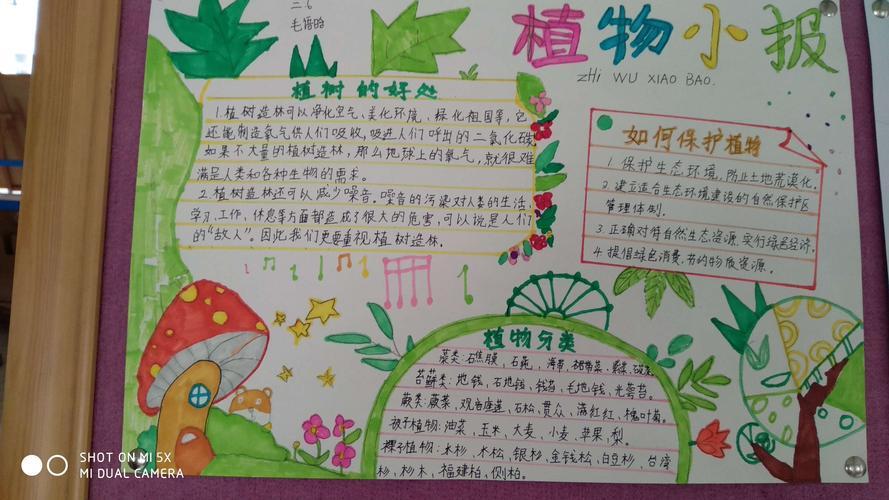 二.6
毛语晗
植物小报
ZHi WU XIAO BAO.
植树的好处
1.植树造林可以净化空气、美化环境、绿化祖国等,它
还能制造氧气供人们吸收,吸进人们呼出的二氧化碳
如果不大量的植树造林,那么地球上的氧气,就很难
满足人类和各种生物的需求。
2.植树造林还可以减少噪音。噪音的污染对人类的生活、
学习、工作、休息等方面都造成了很大的危害,可以说是人们
的“敌人”。因此我们更要重视植树造林。
如何保护植物
1.保护生态环境,防止土地荒漠化。
2.建立适合生态环境建设的自然保护区
管理体制。
3.正确对待自然生态资源,实行绿色经济。
4.提倡绿色消费,节约物质资源。
植物分类
藻类:石礁膜、石莼、海带、裙带菜、紫菜、
苔藓类:地钱、石地钱、钱苔、毛地钱、光萼苔。
蕨类:蕨菜、观音座莲、石松、贯众、满江红、槐叶萍。
被子植物:油菜、玉米、大麦、小麦、苹果、梨。
裸子植物:水杉、水松、银杉、金钱松、白豆杉、台湾
杉、杉木、福建柏、侧柏。
SHOT ON MI 5X
MI DUAL CAMERA